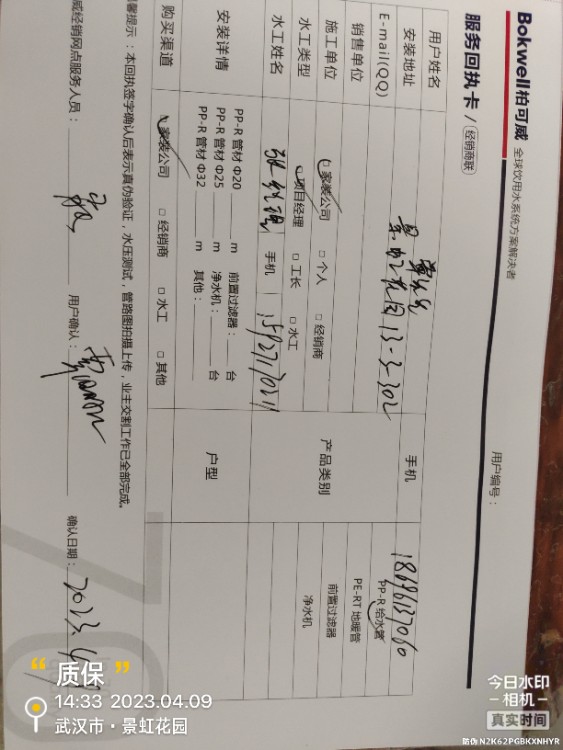 Bokwell柏可威 全球饮用水系统方案解决者
服务回执卡 / 经销商联
用户编号：
用户姓名
手机 18696137060
安装地址 景虹花园13-3-302
E-mail(QQ)
销售单位
施工单位 □家装公司 □个人 □经销商
水工类型 □项目经理 □工长 □水工
水工姓名 张经理 手机 15927170211
产品类别
PP-R 给水管
PE-RT 地暖管
前置过滤器
净水机
安装详情
PP-R 管材 Φ20 ____ m 前置过滤器：____ 台
PP-R 管材 Φ25 ____ m 净水机：____ 台
PP-R 管材 Φ32 ____ m 其他：____
户型
购买渠道 □家装公司 □经销商 □水工 □其他
馨提示：本回执签字确认后表示真伪验证，水压测试，管路图拍摄上传，业主交割工作已全部完成。
威经销网点服务人员：
用户确认：
确认日期：2023.4.
“ 质保 ”
14:33 2023.04.09
武汉市·景虹花园
今日水印
相机
真实时间
防伪 N2K62PGBKXNHYR